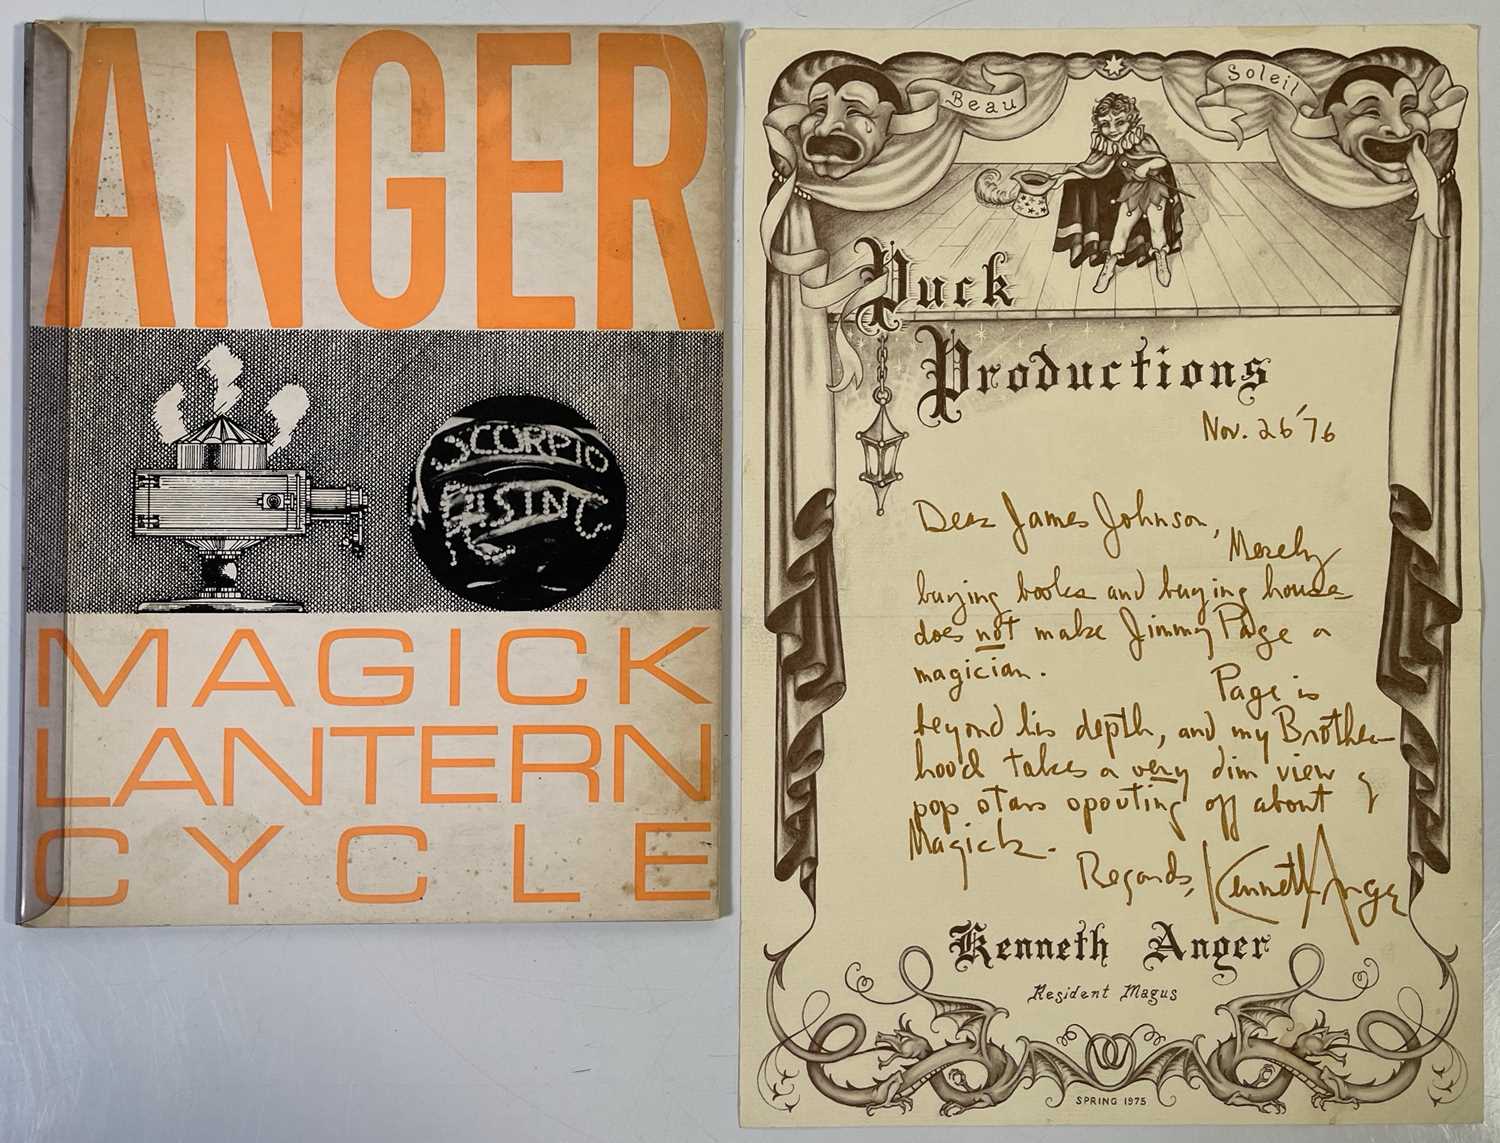 ANGER
SCORPIO
RISING
MAGICK
LANTERN
CYCLE
Beau
Soleil
Puck
Productions
Nov. 26 '76
Dear James Johnson,
Merely
buying books and buying houses
does not make Jimmy Page a
magician.
Page is
beyond his depth, and my Brother-
hood takes a very dim view of
pop stars spouting off about
Magick.
Regards, Kenneth Anger
Kenneth Anger
Resident Magus
SPRING 1975